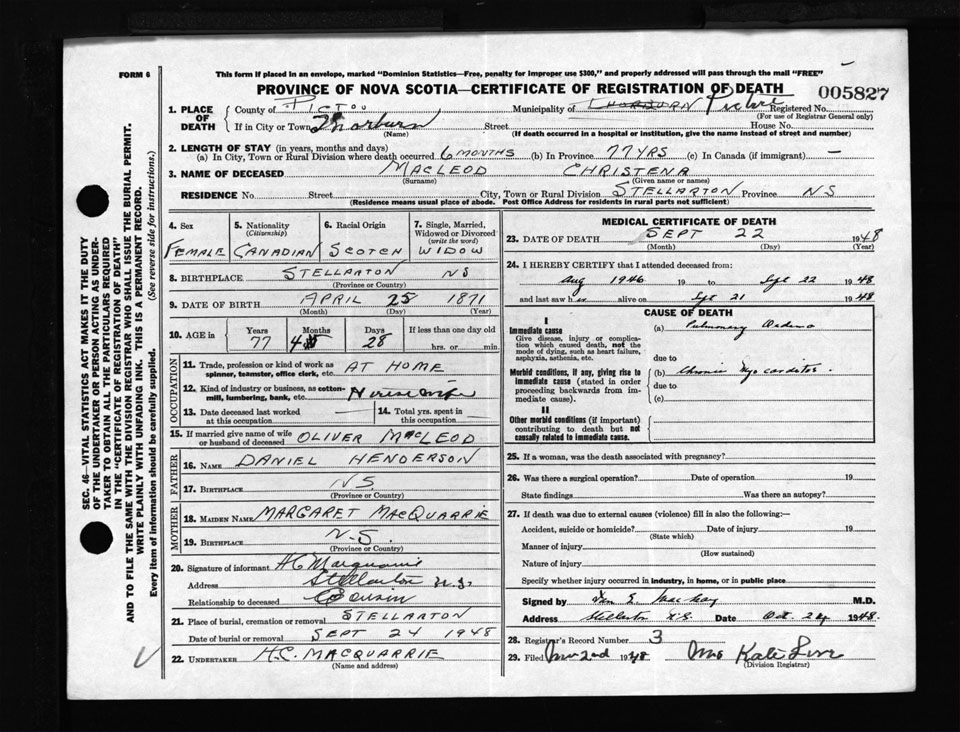 FORM 6
This form if placed in an envelope, marked "Dominion Statistics—Free, penalty for improper use $300," and properly addressed will pass through the mail "FREE"
PROVINCE OF NOVA SCOTIA—CERTIFICATE OF REGISTRATION OF DEATH
005827
1. PLACE OF DEATH
County of PICTOU Municipality of THORBURN Pictou Registered No.
(For use of Registrar General only)
If in City or Town Thorburn Street House No.
(Name) (If death occurred in a hospital or institution, give the name instead of street and number)
2. LENGTH OF STAY (in years, months and days)
(a) In City, Town or Rural Division where death occurred 6 MONTHS (b) In Province 77 YRS (c) In Canada (if immigrant) —
3. NAME OF DECEASED MACLEOD CHRISTENA
(Surname) (Given name or names)
RESIDENCE No. Street City, Town or Rural Division STELLARTON Province NS
(Residence means usual place of abode. Post Office Address for residents in rural parts not sufficient)
4. Sex
FEMALE
5. Nationality
(Citizenship)
CANADIAN
6. Racial Origin
SCOTCH
7. Single, Married, Widowed or Divorced
(write the word)
WIDOW
8. BIRTHPLACE STELLARTON NS
(Province or Country)
9. DATE OF BIRTH APRIL 25 1871
(Month) (Day) (Year)
10. AGE in
Years
77
Months
4
Days
28
If less than one day old
hrs. or min.
OCCUPATION
11. Trade, profession or kind of work as
spinner, teamster, office clerk, etc. AT HOME
12. Kind of industry or business, as cotton-
mill, lumbering, bank, etc. Housewife
13. Date deceased last worked
at this occupation
14. Total yrs. spent in
this occupation
15. If married give name of wife
or husband of deceased OLIVER MACLEOD
FATHER
16. NAME DANIEL HENDERSON
17. BIRTHPLACE NS.
(Province or Country)
MOTHER
18. MAIDEN NAME MARGARET MACQUARRIE
19. BIRTHPLACE N.S.
(Province or Country)
20. Signature of informant HC Macquarrie
Address Stellarton N.S.
Relationship to deceased Cousin
21. Place of burial, cremation or removal STELLARTON
Date of burial or removal SEPT 24 1948
22. UNDERTAKER H.C. MACQUARRIE
(Name and address)
MEDICAL CERTIFICATE OF DEATH
23. DATE OF DEATH SEPT 22 1948
(Month) (Day) (Year)
24. I HEREBY CERTIFY that I attended deceased from:
Aug 1946 19 to Sept 22 1948
and last saw her alive on Sept 21 1948
CAUSE OF DEATH
I
Immediate cause
Give disease, injury or complica-
tion which caused death, not the
mode of dying, such as heart failure,
asphyxia, asthenia, etc.
(a) Pulmonary Oedema
due to
Morbid conditions, if any, giving rise to
immediate cause (stated in order
proceeding backwards from im-
mediate cause).
(b) Chronic Myocarditis.
due to
(c)
II
Other morbid conditions (if important)
contributing to death but not
causally related to immediate cause.
25. If a woman, was the death associated with pregnancy?
26. Was there a surgical operation? Date of operation 19
State findings Was there an autopsy?
27. If death was due to external causes (violence) fill in also the following:—
Accident, suicide or homicide? Date of injury 19
(State which)
Manner of injury
(How sustained)
Nature of injury
Specify whether injury occurred in industry, in home, or in public place
Signed by Dan E. MacKay M.D.
Address Stellarton N.S. Date Oct. 1948
28. Registrar's Record Number 3
29. Filed Nov 2nd 1948 Mrs Kate
(Division Registrar)
SEC. 46—VITAL STATISTICS ACT MAKES IT THE DUTY
OF THE UNDERTAKER OR PERSON ACTING AS UNDER-
TAKER TO OBTAIN ALL THE PARTICULARS REQUIRED
IN THE "CERTIFICATE OF REGISTRATION OF DEATH"
AND TO FILE THE SAME WITH THE DIVISION REGISTRAR WHO SHALL ISSUE THE BURIAL PERMIT.
WRITE PLAINLY WITH UNFADING INK. THIS IS A PERMANENT RECORD.
Every item of information should be carefully supplied. (See reverse side for instructions.)